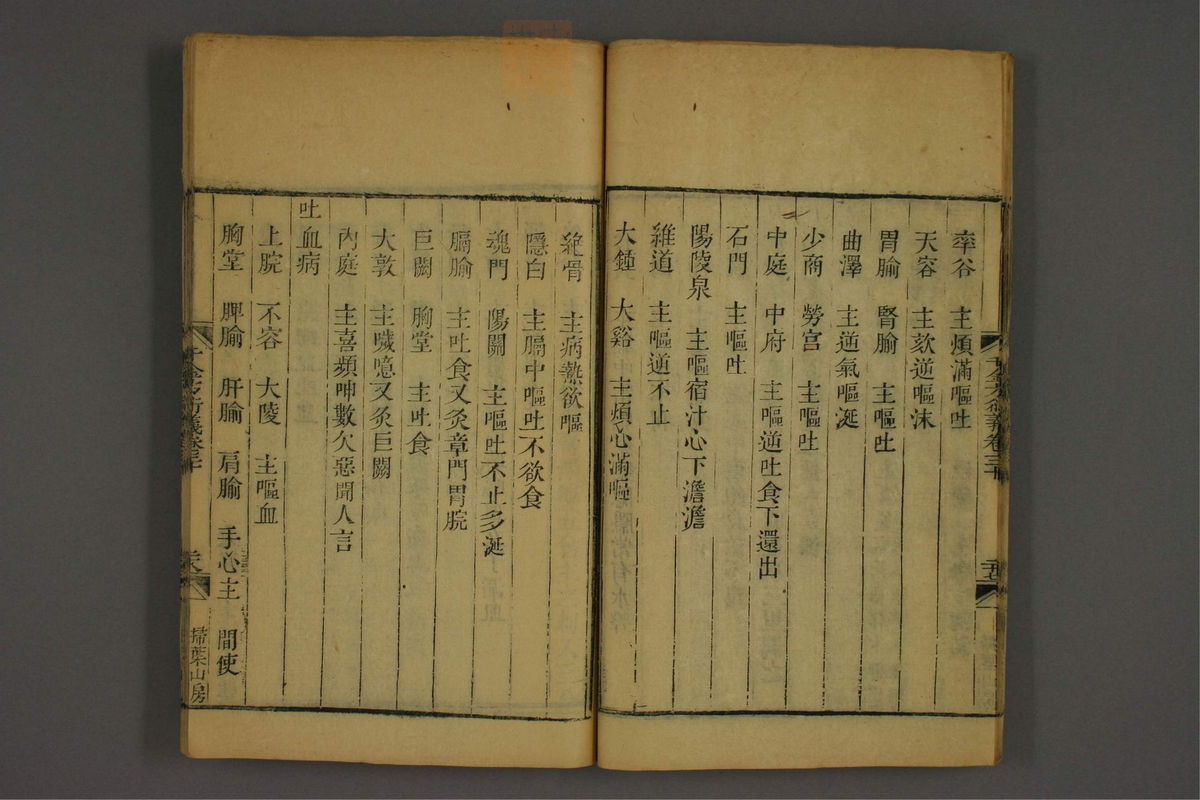 率谷　主煩滿嘔吐
天容　主欬逆嘔沫
胃腧　腎腧　主嘔吐
曲澤　主逆氣嘔涎
少商　勞宮　主嘔吐
中庭　中府　主嘔逆吐食下還出
石門　主嘔吐
陽陵泉　主嘔宿汁心下澹澹
維道　主嘔逆不止
大鍾　大谿　主煩心滿嘔
絶骨　主病熱欲嘔
隱白　主膈中嘔吐不欲食
魂門　陽關　主嘔吐不止多涎
膈腧　主吐食又灸章門胃脘
巨闕　胸堂　主吐食
大敦　主噦噫又灸巨闕
內庭　主喜頻呻數欠惡聞人言
吐血病
上脘　不容　大陵　主嘔血
胸堂　脾腧　肝腧　肩腧　手心主　間使
千金方衍義卷三十
掃葉山房